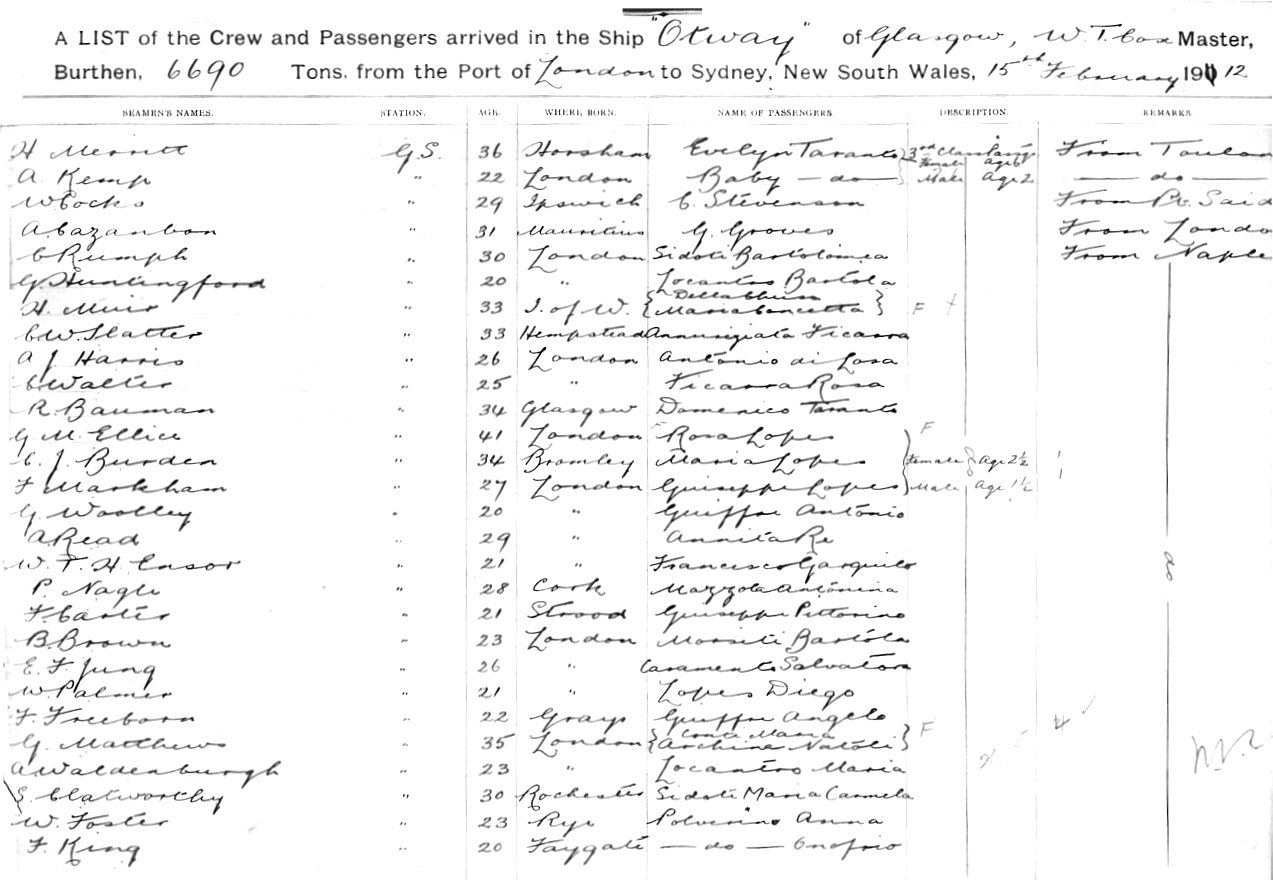 A LIST of the Crew and Passengers arrived in the Ship "Otway" of Glasgow, W. T. Cox Master,
Burthen, 6690 Tons, from the Port of London to Sydney, New South Wales, 15th February 1912
SEAMEN'S NAMES. STATION. AGE. WHERE BORN. NAME OF PASSENGERS DESCRIPTION. REMARKS.
H Merritt G.S. 36 Horsham Evelyn Taranto 3rd Class Passgr Female Age 6 From Toulon
A. Kemp " 22 London Baby — do — Male Age 2 — do —
W Cocks " 29 Ipswich C. Stevenson From Pt. Said
A Cazanbon " 31 Mauritius G. Groves From Londo
C Rumph " 30 London Sidoti Bartolomea From Naple
G. Huntingford " 20 " Locantro Bartola
H. Muir " 33 I. of W. { Dellabhusa Maria Concetta } F
C. W. Slatter " 33 Hempstead Annunziata Ficarra
A J Harris " 26 London Antonio di Losa
C Walter " 25 " Ficarra Rosa
R. Bauman " 34 Glasgow Domenico Taranto
G M. Ellice " 41 London Rosa Lopes F
C. J. Burden " 34 Bromley Maria Lopes Female Age 2½
F Markham " 27 London Guiseppe Lopes Male Age 1½
G Woolley " 20 " Guiffre Antonio
A Read " 29 " Annita Re
W. F. H Ensor " 21 " Francesco Garquilo do
P. Nagle " 28 Cork Mazzola Antonina
F. Carter " 21 Strood Guiseppe Pittorino
B. Brown " 23 London Morsiti Bartola
E. F. Jung " 26 " Casamento Salvatora
W. Palmer " 21 " Lopes Diego
F. Freeborn " 22 Grays Guiffre Angelo
G. Matthews " 35 London { Conti Maria Archine Natoli } F
A Waldenburgh " 23 " Locantro Maria
S. Clatworthy " 30 Rochester Sidoti Maria Carmela
W. Foster " 23 Rye Polverino Anna
F. King " 20 Faygate — do — Onofrio